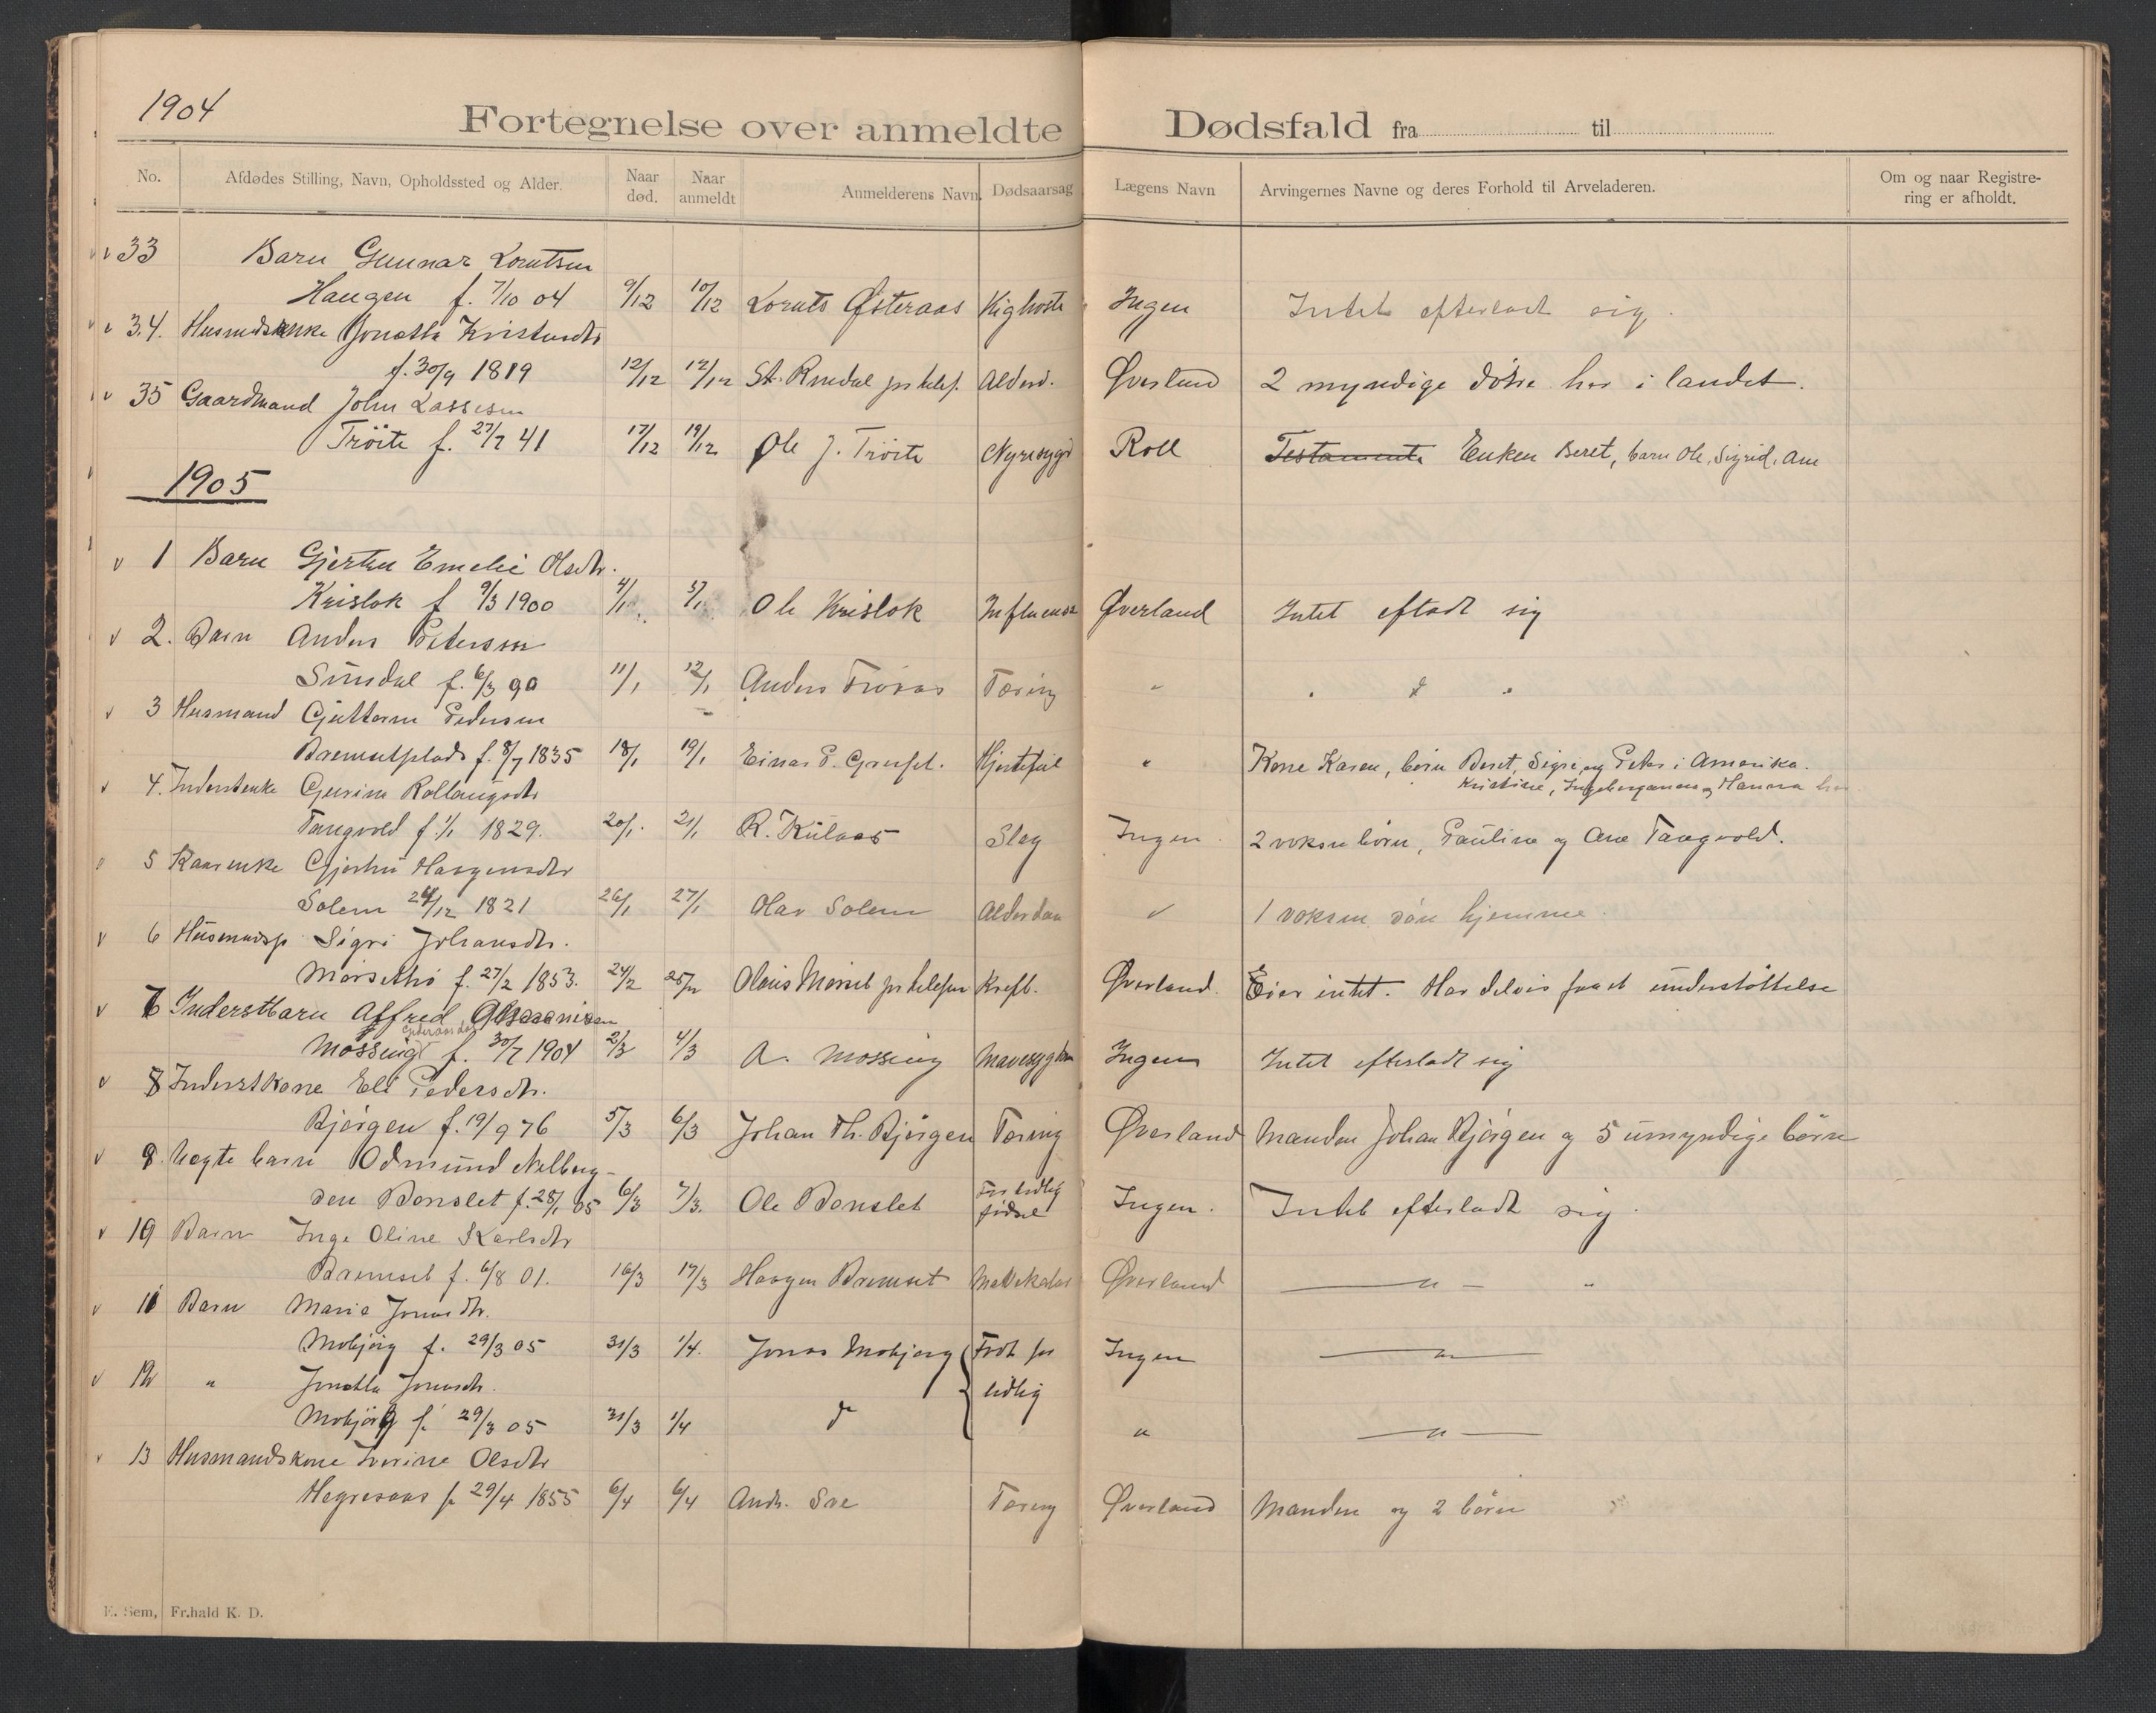 1904
Fortegnelse over anmeldte Dødsfald fra til
No. Afdødes Stilling, Navn, Opholdssted og Alder. Naar død. Naar anmeldt Anmelderens Navn. Dødsaarsag Lægens Navn Arvingernes Navne og deres Forhold til Arveladeren. Om og naar Registrering er afholdt.
33 Barn Gunnar Lorntsen
Haugen f. 7/10 04 9/12 10/12 Lornts Østeraas Kighoste Ingen Intet efterladt sig.
34. Jonetta
f. 30/9 1819 12/12 12/12 St. Alderd. Øverland 2 myndige døtre her i landet.
35 Gaardmand John Lassesen
Tröite f. 27/7 41 17/12 19/12 Ole J. Tröite Nyresygd Roll Testamente Enken Beret, barn Ole, Sigrid, Ane
1905
1 Barn Gjertru Emelie Olsdtr.
Krislok f 9/3 1900 4/1 5/1 Ole Krislok Influensa Øverland Intet eftladt sig
2. Barn Anders Petersen
Sundal f. 6/3 90 11/1 12/1 Anders Tæring "
3 Husmand Guttorm Pedersen
Bremsetplads f. 8/7 1835 18/1 19/1 Einar P. Hjertefeil " Kone Karen, børn Beret, Sigri, og Peter i Amerika.
Kristine, og Hanna her
4.
Tangvold f. 1/1 1829. 20/1. 21/1 R. Slag Ingen 2 voksne børn, Pauline og Ane Tangvold.
5 Kaarenke Haagensdtr
Solem 24/12 1821 26/1 27/1 Olav Solem 1 voksen søn hjemme.
6 Sigri Johansdtr.
f. 27/2 1853. 24/2 25/2 Olaus Morset pr telefon Kreft. Øverland. Eier intet. Har delvis faaet understøttelse
7 Inderstbarn Alfred
Mossing f. 30/7 1904 2/3 4/3 A. Mossing Ingen Intet efterladt sig
8 Inderstkone Eli Pedersdtr.
Bjørgen f. 19/9 76 5/3 6/3 Johan Th. Bjørgen Tæring Øverland Manden Johan Bjørgen og 5 umyndige børn
9. Uegte barn Odmund
Bonslet f. 28/1 05 6/3 7/3. Ole Bonslet For tidlig fødsel Ingen. Intet efterladt sig.
10 Barn Inga Oline Karlsdtr
Bremset f. 6/8 01. 16/3 17/3 Haagen Bremset Øverland — " — "
11 Barn Maria Jonasdtr.
Mobjørg f. 29/3 05 31/3 1/4. Jonas Mobjørg Født for Ingen — " —
12 " Jonetta Jonasdtr. tidlig
Mobjørg f. 29/3 05 31/3 1/4 do " — " —
13 Husmandskone Iverine Olsdtr
Hegresaas f. 29/4 1855 6/4 6/4 Andr. Tæring Øverland Manden og 2 børn
E. Sem, Fr.hald K. D.